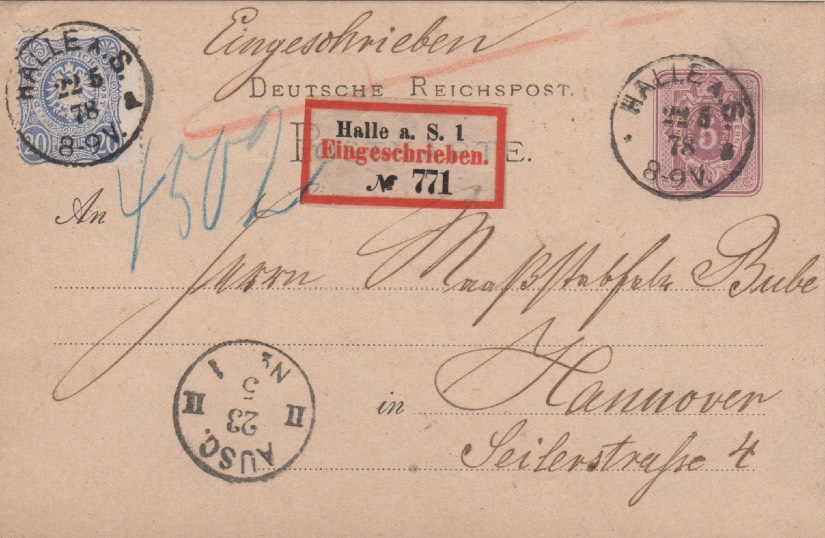 Eingeschrieben
DEUTSCHE REICHSPOST.
HALLE A. S.
22 5
78
8-9V.
20 PFENNIG 20
HALLE A. S.
22 5
78
8-9V.
5
Halle a. S. 1
Eingeschrieben.
№ 771
4502
An
Herrn Bube
in Hannover
Seilerstraße 4
AUSG.
II 23 II
5
1 N.